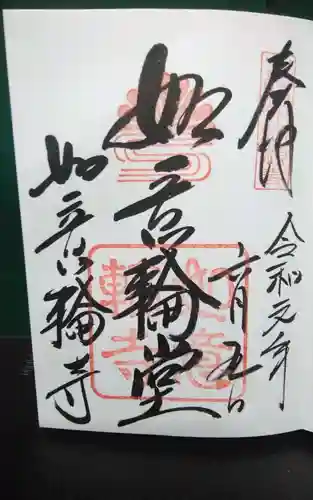 奉拝
令和元年
六月五日
如意輪堂
如意輪寺